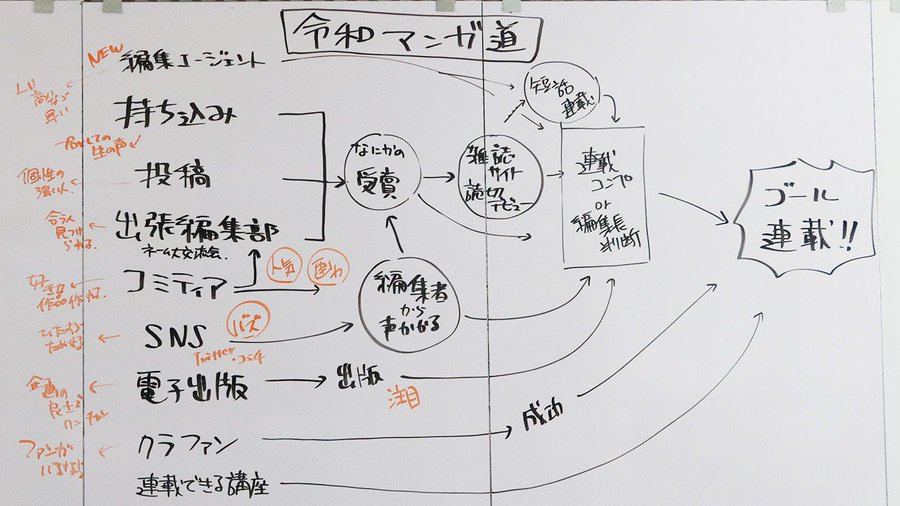 令和マンガ道
NEW
編集エージェント
早い
持ち込み
生の声
投稿
個性の
強い人
出張編集部
ネーム大交流会
合う人
見つけ
られる
コミティア
人気
画力
好きな
作品作れる
SNS
バズ
Twitter
電子出版
出版
注目
企画の
良さで
ワンチャン
クラファン
ファンが
いるなら
成功
連載できる講座
なにかの
受賞
編集者
から
声かかる
雑誌
サイト
読切
デビュー
短話
連載
連載
コンペ
or
編集長
判断
ゴール
連載!!